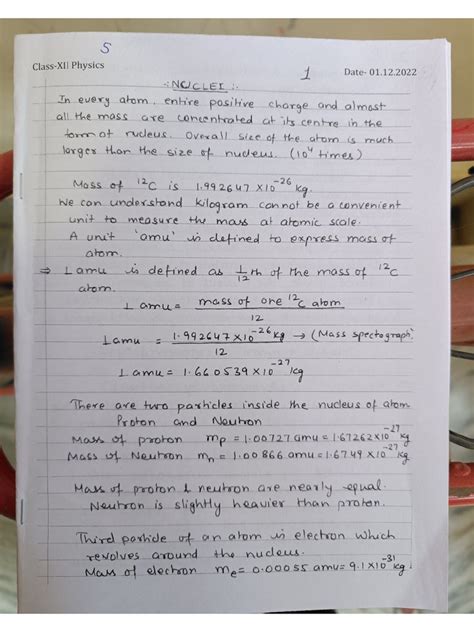 5
Class-XII Physics 1 Date- 01.12.2022
-: NUCLEI :-
In every atom, entire positive charge and almost
all the mass are concentrated at its centre in the
form of nucleus. Overall size of the atom is much
larger than the size of nucleus. (10⁴ times)
Mass of ¹²C is 1.992647 ×10⁻²⁶ kg.
We can understand kilogram cannot be a convenient
unit to measure the mass at atomic scale.
A unit 'amu' is defined to express mass of
atom.
⇒ 1 amu is defined as 1/12 th of the mass of ¹²C
atom.
1 amu = mass of one ¹²C atom / 12
1 amu = 1.992647×10⁻²⁶ kg / 12 → (Mass spectograph)
1 amu = 1.660539 ×10⁻²⁷ kg
There are two particles inside the nucleus of atom
Proton and Neutron
Mass of proton mp = 1.00727 amu = 1.67262×10⁻²⁷ kg
Mass of Neutron mn = 1.00866 amu = 1.6749 ×10⁻²⁷ kg
Mass of proton & neutron are nearly equal.
Neutron is slightly heavier than proton.
Third particle of an atom is electron which
revolves around the nucleus.
Mass of electron me = 0.00055 amu = 9.1×10⁻³¹ kg.